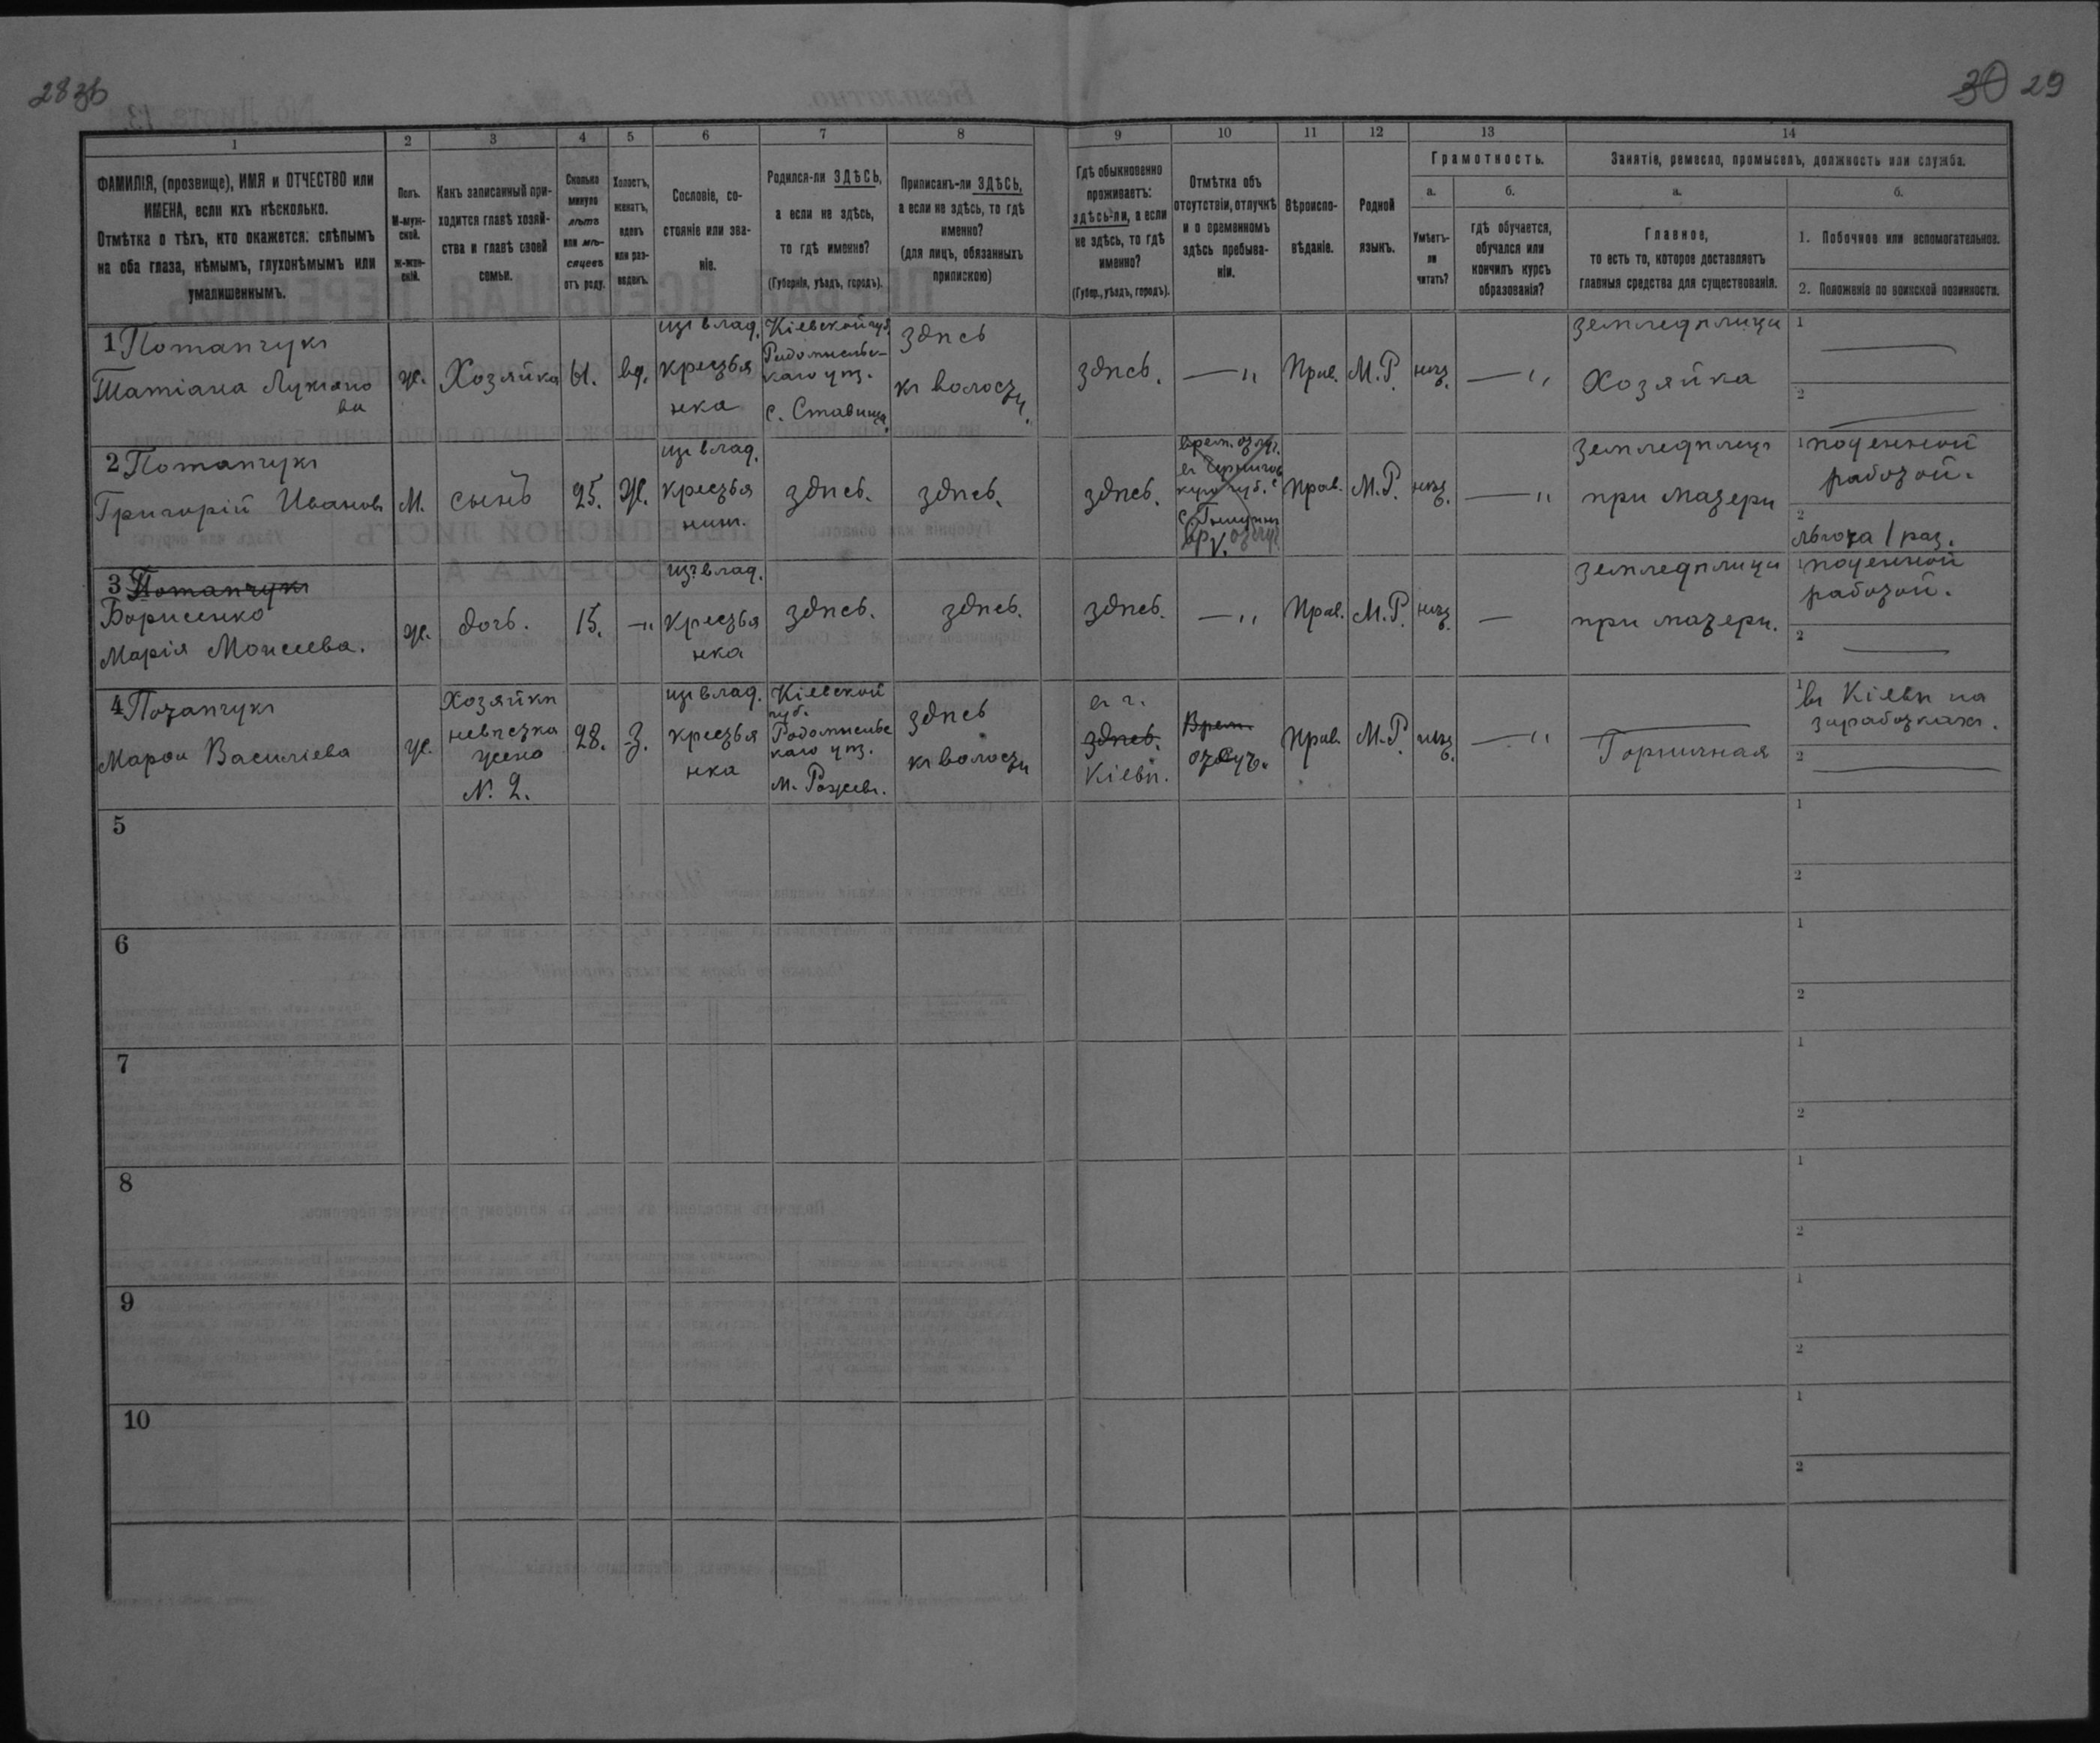 28 зв
30 29
1
2
3
4
5
6
7
8
9
10
11
12
13
14
ФАМИЛІЯ, (прозвище), ИМЯ и ОТЧЕСТВО или
ИМЕНА, если ихъ нѣсколько.
Отмѣтка о тѣхъ, кто окажется: слѣпымъ
на оба глаза, нѣмымъ, глухонѣмымъ или
умалишеннымъ.
Полъ.
М-муж-
ской.
Ж-жен-
скій.
Какъ записанный при-
ходится главѣ хозяй-
ства и главѣ своей
семьи.
Сколько
минуло
лѣтъ
или мѣ-
сяцевъ
отъ роду.
Холостъ,
женатъ,
вдовъ
или раз-
веденъ.
Сословіе, со-
стояніе или зва-
ніе.
Родился-ли ЗДѢСЬ,
а если не здѣсь,
то гдѣ именно?
(Губернія, уѣздъ, городъ).
Приписанъ-ли ЗДѢСЬ,
а если не здѣсь, то гдѣ
именно?
(для лицъ, обязанныхъ
припискою)
Гдѣ обыкновенно
проживаетъ:
здѣсь-ли, а если
не здѣсь, то гдѣ
именно?
(Губер., уѣздъ, городъ).
Отмѣтка объ
отсутствіи, отлучкѣ
и о временномъ
здѣсь пребыва-
ніи.
Вѣроиспо-
вѣданіе.
Родной
языкъ.
Грамотность.
а.
Умѣетъ-
ли
читать?
б.
гдѣ обучается,
обучался или
кончилъ курсъ
образованія?
Занятіе, ремесло, промыселъ, должность или служба.
а.
Главное,
то есть то, которое доставляетъ
главныя средства для существованія.
б.
1. Побочное или вспомогательное.
2. Положеніе по воинской повинности.
1 Потапчукъ
Татіана Лукіано
ва
ж.
Хозяйка
61.
вд.
изъ влад.
крестья
нка
Кіевской губ.
Радомысльс-
каго уѣз.
с. Ставища.
здѣсь
къ волости.
здѣсь.
—"
Прав.
М.Р.
нѣт.
—"
земледѣлица
Хозяйка
1
2
2 Потапчукъ
Григорій Ивановъ
М.
сынъ
25.
Ж.
изъ влад.
крестья
нин.
здѣсь.
здѣсь.
здѣсь.
врем. отлуч.
въ Чернигов
кую губ.
Прав.
М.Р.
нѣт.
—"
земледѣлецъ
при матери
1 поденной
работой.
2
льгота 1 раз.
3 Потапчукъ
Борисенко
Марія Моисеева.
ж.
дочь.
15.
—"
изъ влад.
крестья
нка
здѣсь.
здѣсь.
здѣсь.
—"
Прав.
М.Р.
нѣт.
—
земледѣлица
при матери.
1 поденной
работой.
2
4 Потапчукъ
Марѳа Васильева
ж.
Хозяйки
невѣстка
жена
№ 2.
28.
З.
изъ влад.
крестья
нка
Кіевской
губ.
Радомысльс
каго уѣз.
м. Рожевъ.
здѣсь
къ волости
въ г.
здѣсь.
Кіевѣ.
Врем.
отлуч.
Прав.
М.Р.
нѣт.
—"
Горничная
1
въ Кіевѣ на
заработкахъ.
2
5
1
2
6
1
2
7
1
2
8
1
2
9
1
2
10
1
2